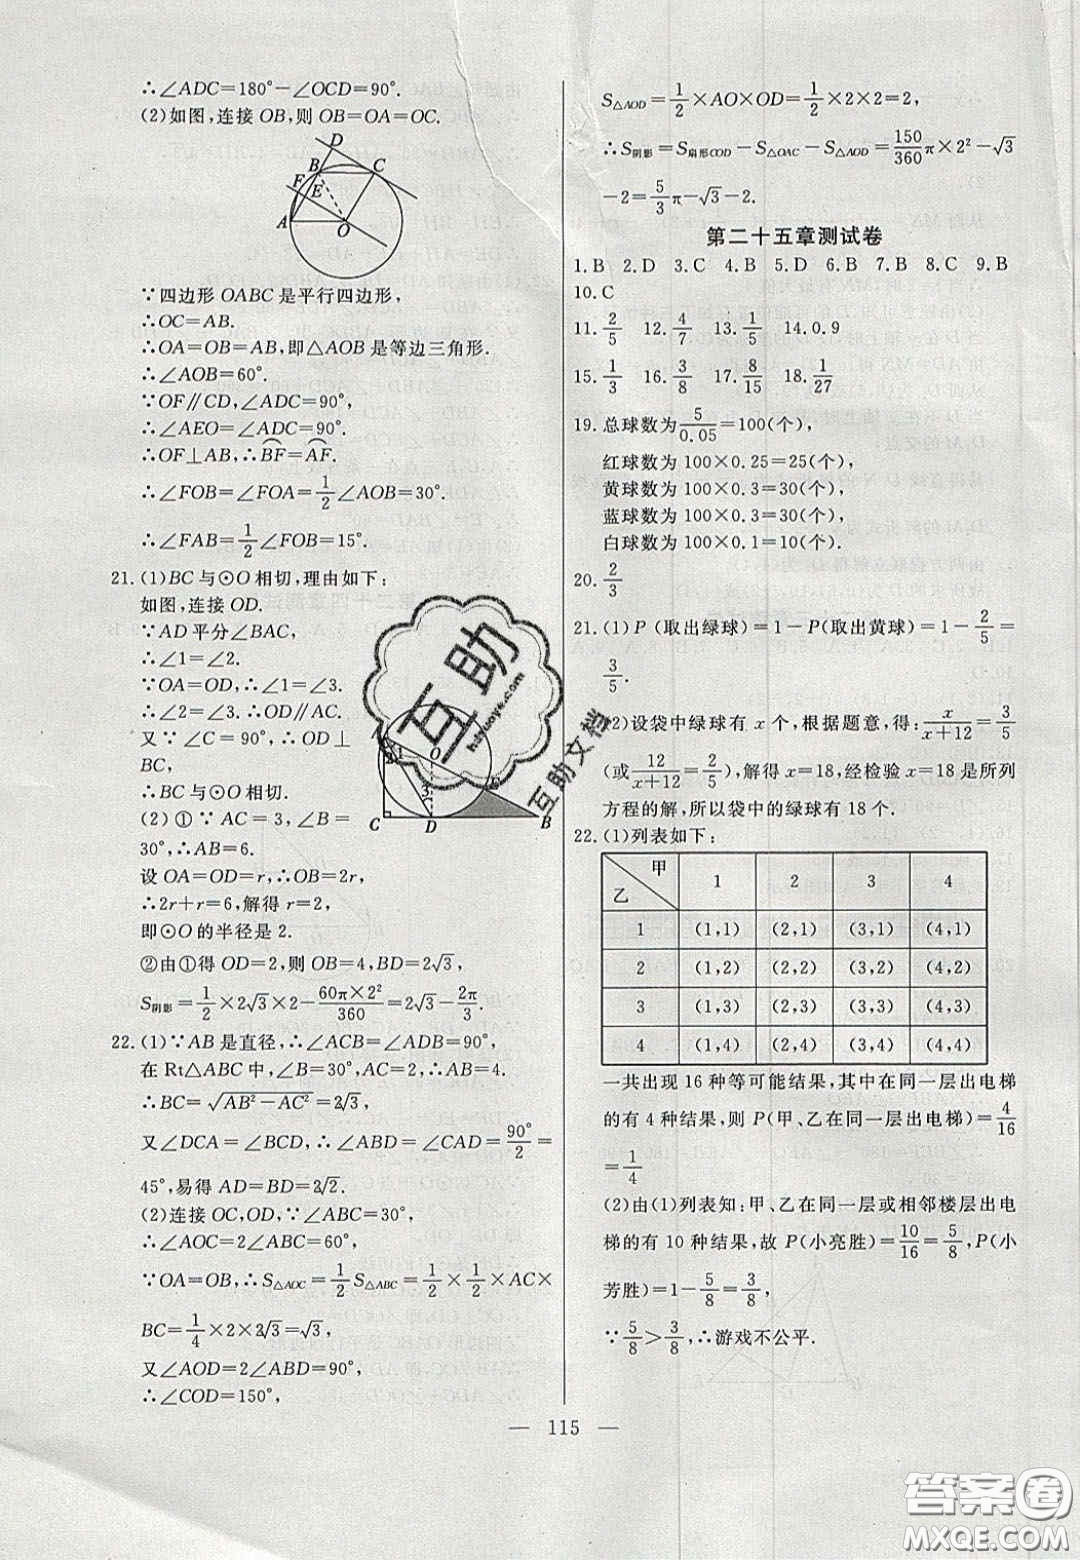 ∴∠ADC=180°−∠OCD=90°.
(2)如图,连接OB,则OB=OA=OC.
D
B
C
F
E
A
O
∵四边形OABC是平行四边形,
∴OC=AB.
∴OA=OB=AB,即△AOB是等边三角形.
∴∠AOB=60°.
∵OF∥CD,∠ADC=90°,
∴∠AEO=∠ADC=90°.
∴OF⊥AB,∴⌒BF=⌒AF.
∴∠FOB=∠FOA=1/2∠AOB=30°.
∴∠FAB=1/2∠FOB=15°.
21.(1)BC与⊙O相切,理由如下:
如图,连接OD.
∵AD平分∠BAC,
∴∠1=∠2.
∵OA=OD,∴∠1=∠3.
∴∠2=∠3.∴OD∥AC.
又∵∠C=90°,∴OD⊥
BC,
∴BC与⊙O相切.
(2)①∵AC=3,∠B=
30°,∴AB=6.
设OA=OD=r,∴OB=2r,
∴2r+r=6,解得r=2,
即⊙O的半径是2.
1
2
O
3
C
D
B
②由①得OD=2,则OB=4,BD=2√3,
S阴影=1/2×2√3×2−60π×2²/360=2√3−2π/3.
22.(1)∵AB是直径,∴∠ACB=∠ADB=90°,
在Rt△ABC中,∠B=30°,AC=2,∴AB=4.
∴BC=√(AB²−AC²)=2√3,
又∠DCA=∠BCD,∴∠ABD=∠CAD=90°/2=
45°,易得AD=BD=2√2.
(2)连接OC,OD,∵∠ABC=30°,
∴∠AOC=2∠ABC=60°,
∵OA=OB,∴S△AOC=1/2S△ABC=1/2×1/2×AC×
BC=1/4×2×2√3=√3,
又∠AOD=2∠ABD=90°,
∴∠COD=150°,
S△AOD=1/2×AO×OD=1/2×2×2=2,
∴S阴影=S扇形COD−S△OAC−S△AOD=150/360π×2²−√3
−2=5/3π−√3−2.
第二十五章测试卷
1.B 2.D 3.C 4.B 5.D 6.B 7.B 8.C 9.B
10.C
11.2/5 12.4/7 13.1/4 14.0.9
15.1/3 16.3/8 17.8/15 18.1/27
19.总球数为5/0.05=100(个),
红球数为100×0.25=25(个),
黄球数为100×0.3=30(个),
蓝球数为100×0.3=30(个),
白球数为100×0.1=10(个).
20.2/3
21.(1)P(取出绿球)=1−P(取出黄球)=1−2/5=
3/5.
(2)设袋中绿球有x个,根据题意,得:x/(x+12)=3/5
(或12/(x+12)=2/5),解得x=18,经检验x=18是所列
方程的解,所以袋中的绿球有18个.
22.(1)列表如下:
甲 乙 1 2 3 4
1 (1,1) (2,1) (3,1) (4,1)
2 (1,2) (2,2) (3,2) (4,2)
3 (1,3) (2,3) (3,3) (4,3)
4 (1,4) (2,4) (3,4) (4,4)
一共出现16种等可能结果,其中在同一层出电梯
的有4种结果,则P(甲、乙在同一层出电梯)=4/16
=1/4
(2)由(1)列表知:甲、乙在同一层或相邻楼层出电
梯的有10种结果,故P(小亮胜)=10/16=5/8,P(小
芳胜)=1−5/8=3/8,
∵5/8>3/8,∴游戏不公平.
— 115 —
互助
互助文档
答案圈
MXQE.COM